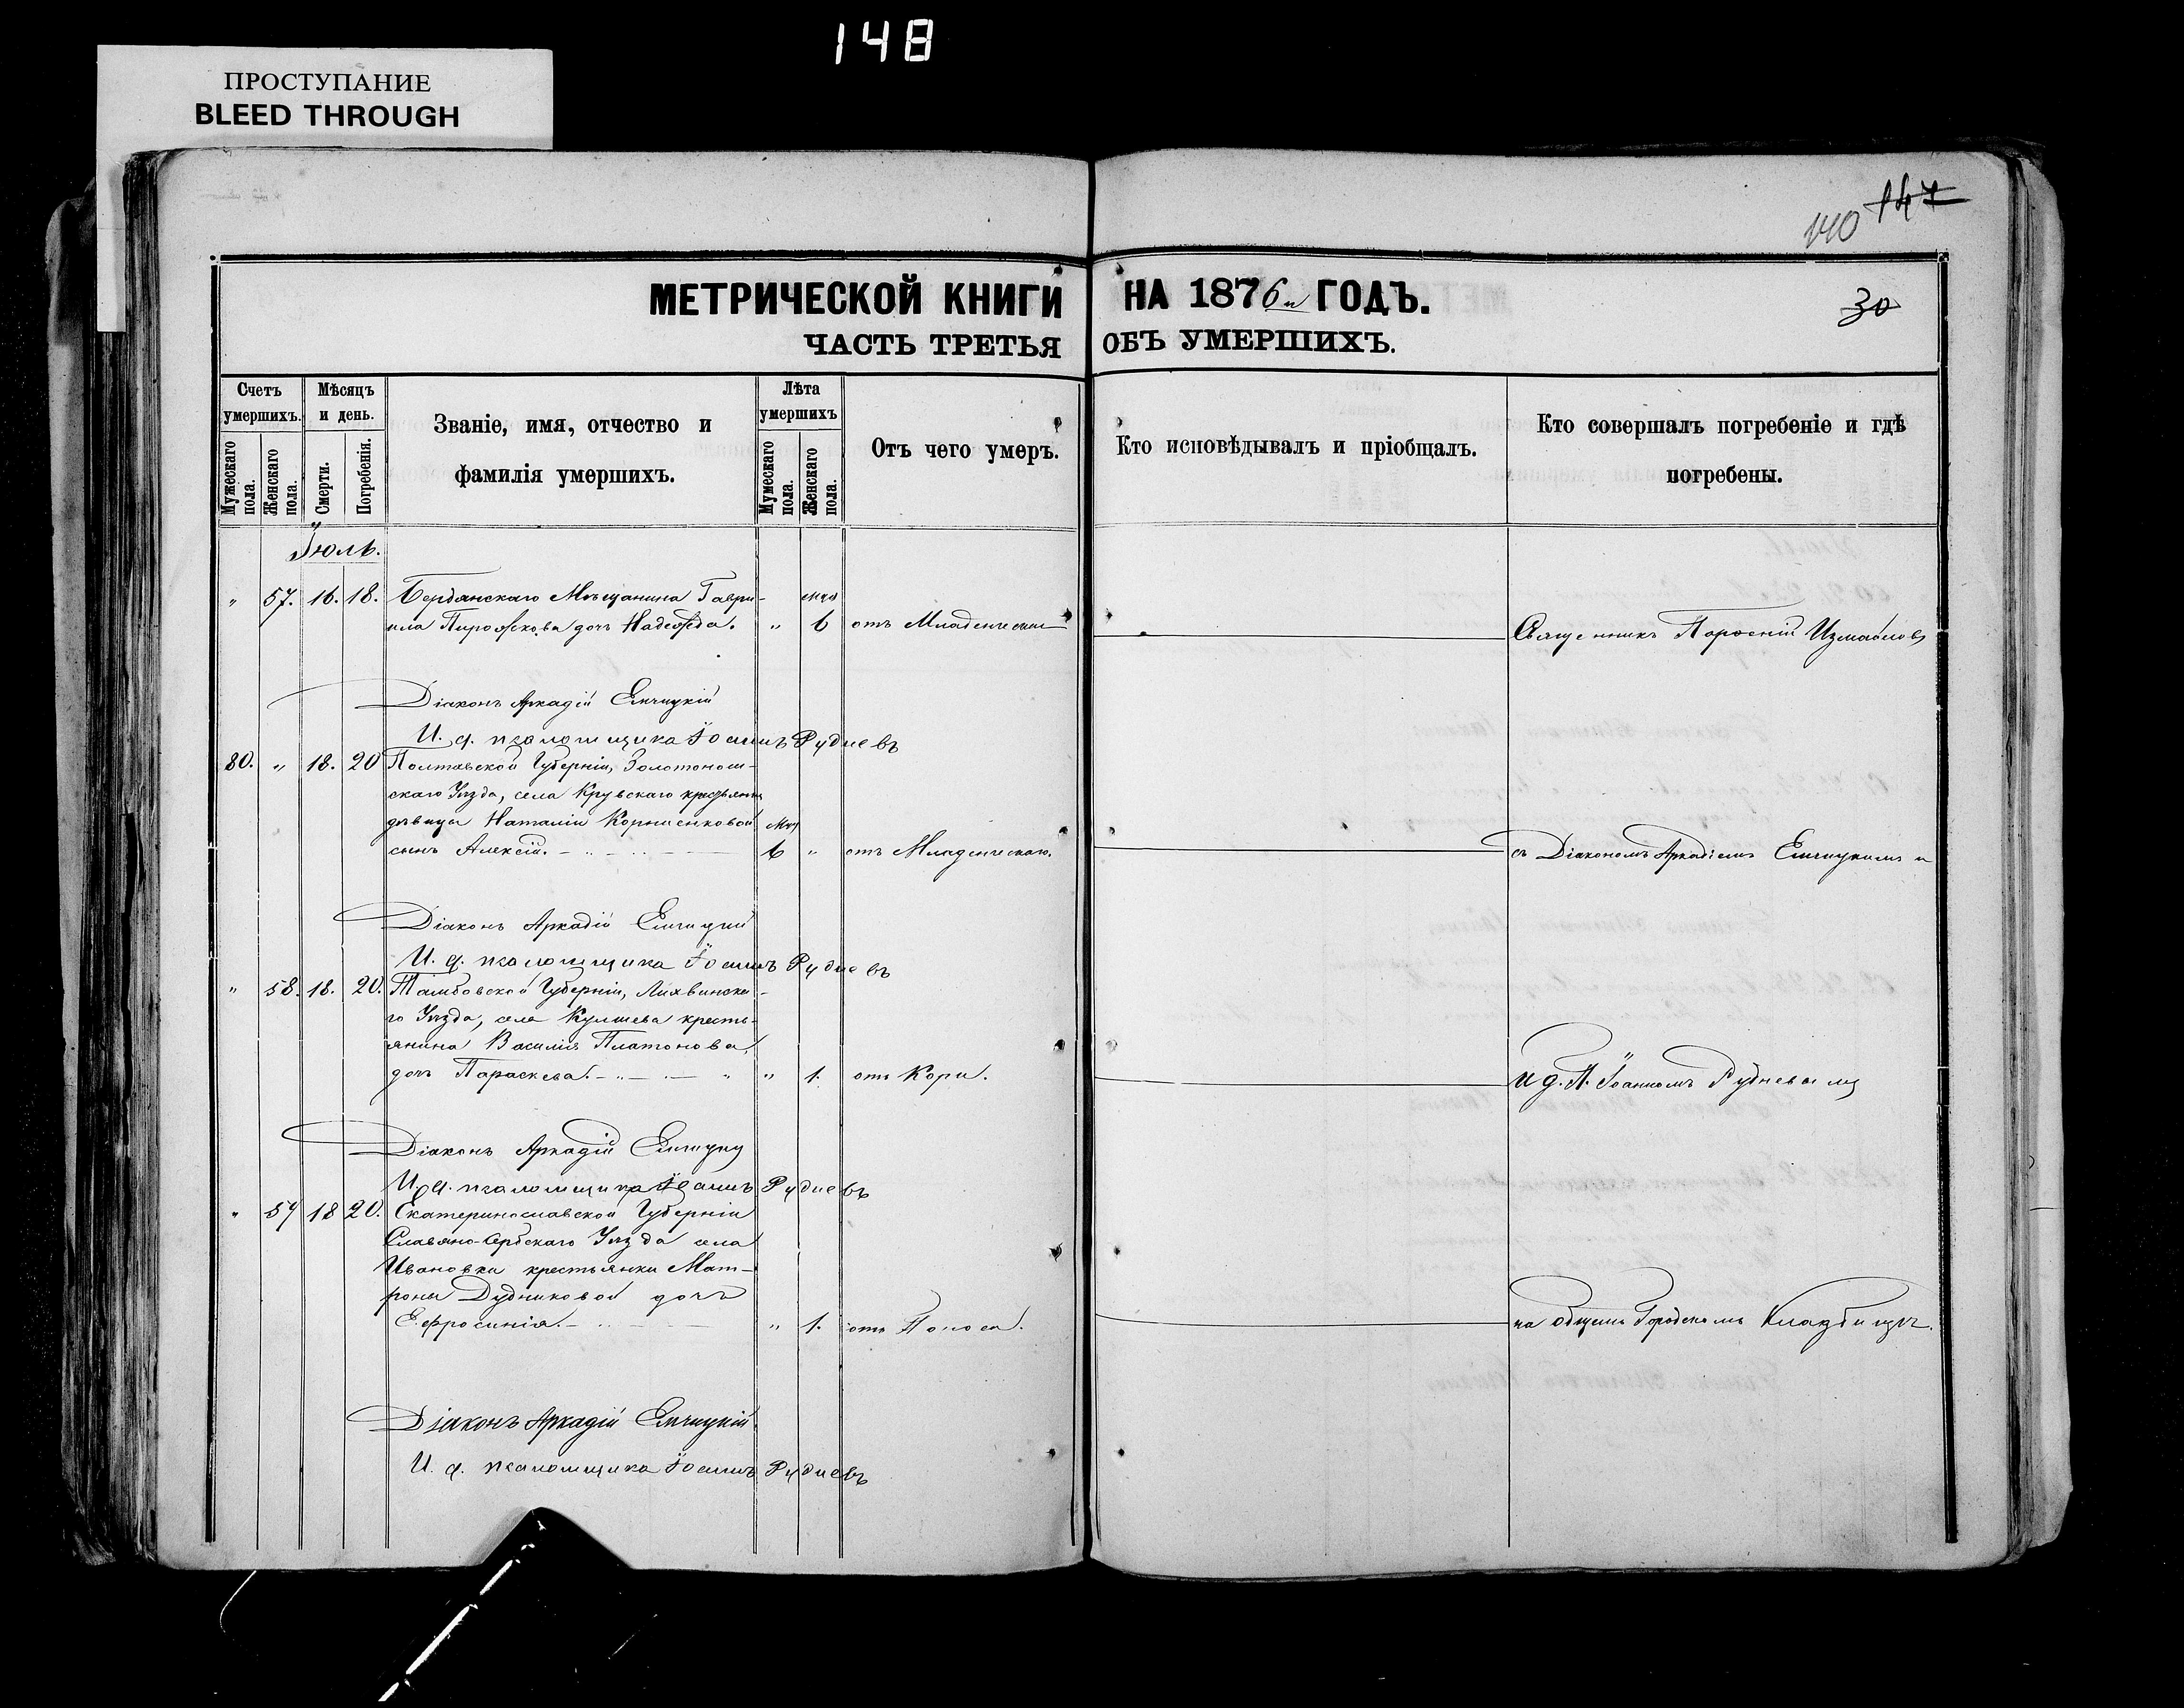 148
ПРОСТУПАНИЕ
BLEED THROUGH
147
140
МЕТРИЧЕСКОЙ КНИГИ НА 1876й ГОДЪ.
30
ЧАСТЬ ТРЕТЬЯ ОБЪ УМЕРШИХЪ.
Счетъ умершихъ.
Мужескаго пола.
Женскаго пола.
Мѣсяцъ и день.
Смерти.
Погребенія.
Званіе, имя, отчество и
фамилія умершихъ.
Лѣта умершихъ
Мужескаго пола.
Женскаго пола.
Отъ чего умеръ.
Кто исповѣдывалъ и пріобщалъ.
Кто совершалъ погребеніе и гдѣ
погребены.
Іюль.
" 57. 16. 18. Бердянскаго Мѣщанина Гаври- мця
ила Пирожкова дочь Надежда. " 6 отъ Младенческ Священникъ Измаиловъ
Діаконъ Аркадій
И. д. псаломщика Іоаннъ Рудневъ
80. " 18. 20 Полтавской Губерніи, Золотонош-
скаго Уѣзда, села
дѣвицы Наталіи Корніенковой мця
сынъ Алексій. 6 " отъ Младенческаго. съ Діакономъ Аркадіемъ и
Діаконъ Аркадій
И. д. псаломщика Іоаннъ Рудневъ
" 58. 18. 20. Тамбовской Губерніи,
го Уѣзда, села кресть-
янина Василія Платонова,
дочь Параскева. " " 1. отъ Кори. и д. П. Іоанномъ Рудневымъ
Діаконъ Аркадій
И. д. псаломщика Іоаннъ Рудневъ
" 59 18 20. Екатеринославской Губерніи
Славяно-Сербскаго Уѣзда села
Ивановки крестьянки Мат-
роны Дудниковой дочь
Ефросинія. " 1. отъ Поноса. на общемъ Городскомъ Кладбищѣ.
Діаконъ Аркадій
И. д. псаломщика Іоаннъ Рудневъ